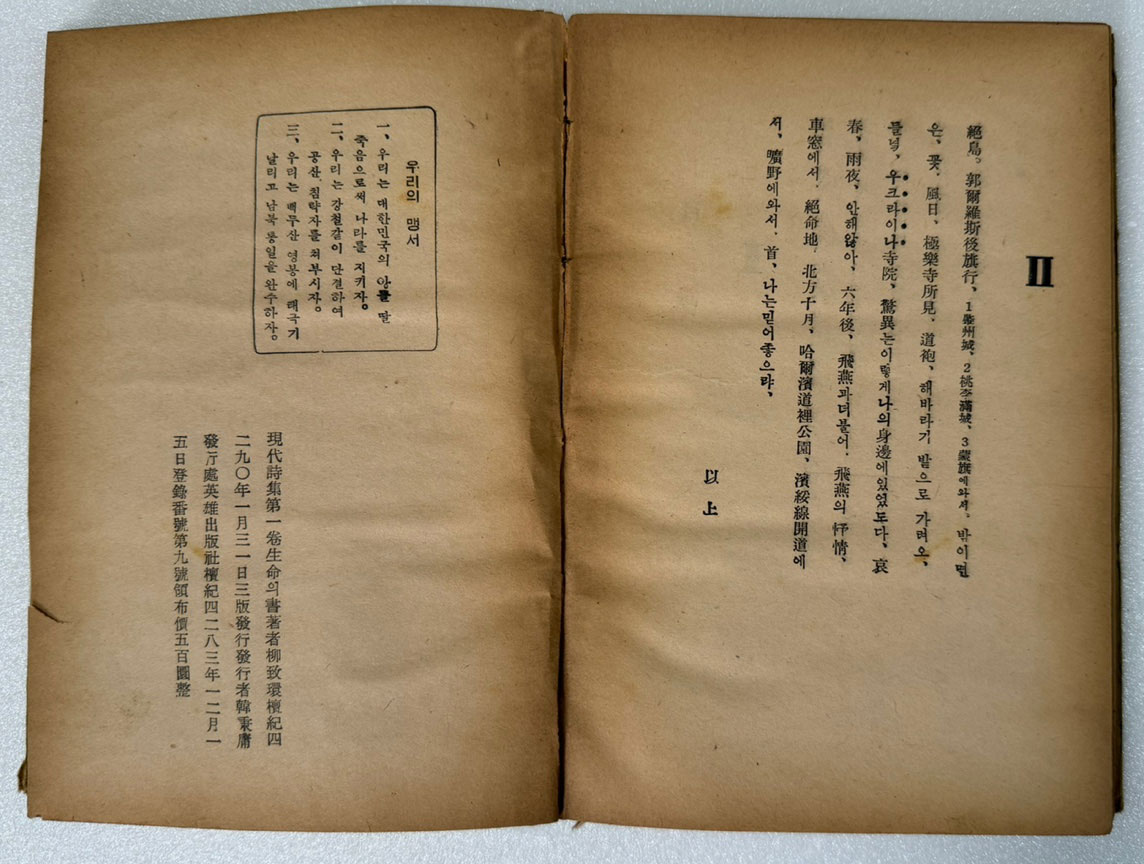 II
絕島。郭爾羅斯後旗行、1肇州城、2桃李滿城、3蒙旗에와서、밤이면
은、꽃、風日、極樂寺所見、道袍、해바라기 밭으로 가려오、
들녘、우크라이나寺院、驚異는이렇게나의身邊에있었도다、哀
春、雨夜、안해앓아、六年後、飛燕과더불어、飛燕의 抒情、
車窓에서、絕命地、北方十月、哈爾濱道裡公園、濱綏線開道에
서、曠野에와서、首、나는믿어좋으랴、
以上
우리의 맹서
一、우리는 대한민국의 아들 딸
죽음으로써 나라를 지키자。
二、우리는 강철같이 단결하여
공산 침략자를 쳐부시자。
三、우리는 백두산 영봉에 태극기
날리고 남북 통일을 완수하자。
現代詩集第一卷生命의書著者柳致環檀紀四
二九〇年一月三一日三版發行發行者韓秉庸
發行處英雄出版社檀紀四二八三年一二月一
五日登錄番號第九號領布價五百圜整